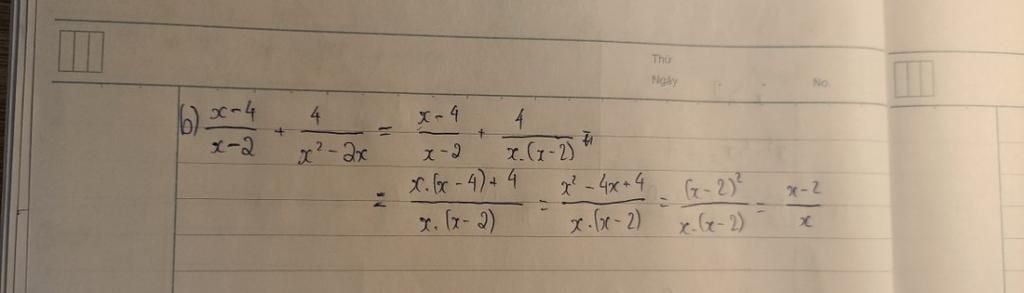 Thứ
Ngày No.
b) \frac{x-4}{x-2} + \frac{4}{x^2-2x} = \frac{x-4}{x-2} + \frac{4}{x.(x-2)}
= \frac{x.(x-4)+4}{x.(x-2)} = \frac{x^2-4x+4}{x.(x-2)} = \frac{(x-2)^2}{x.(x-2)} = \frac{x-2}{x}